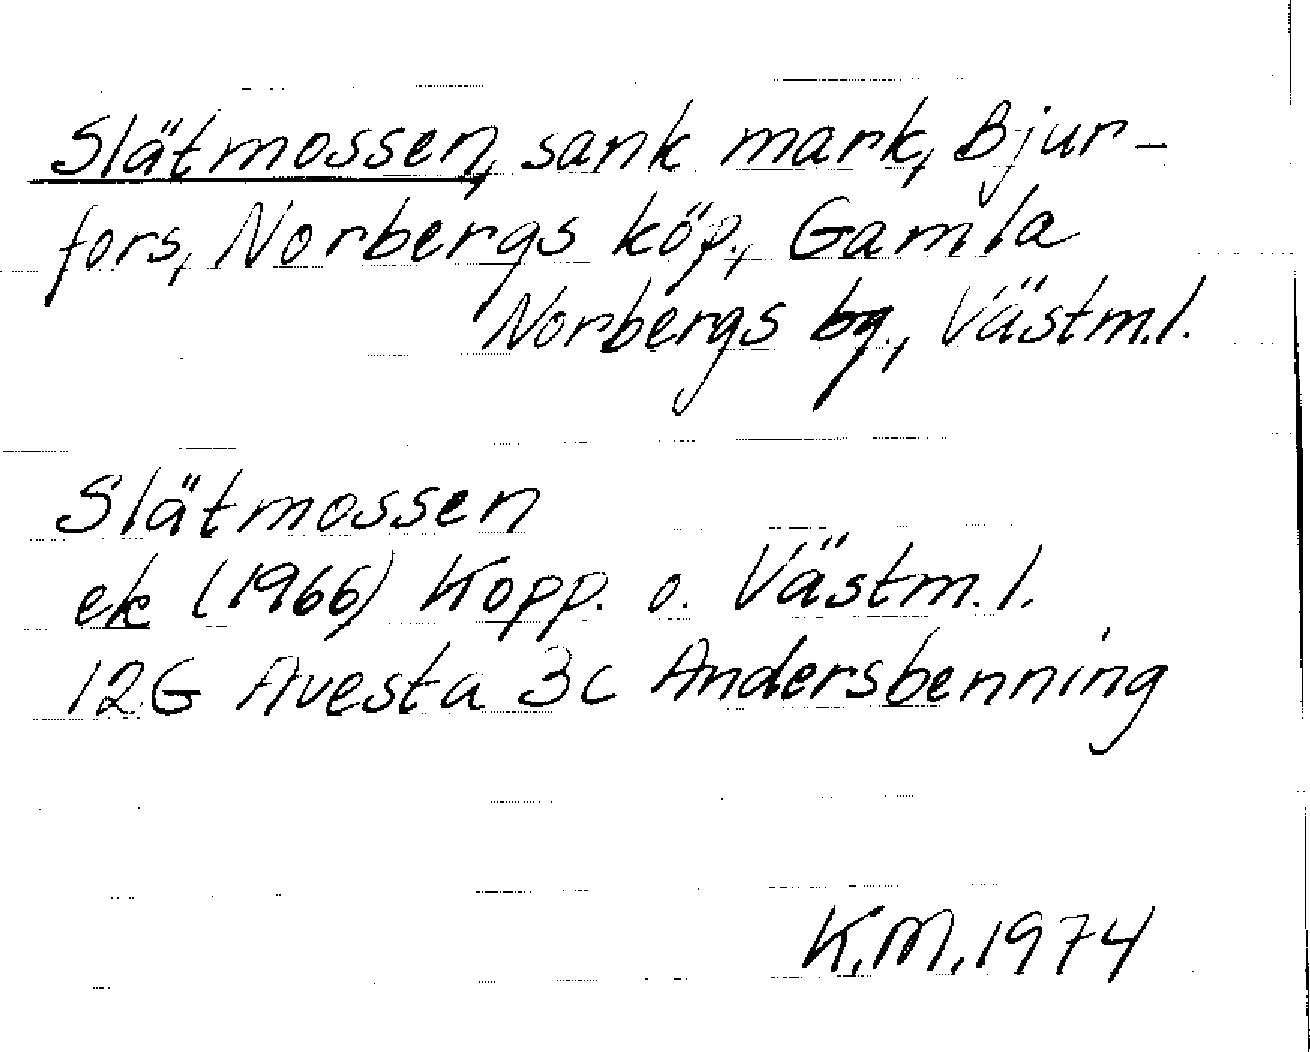 Slätmossen, sank mark, Bjur-
fors, Norbergs köp., Gamla
Norbergs bg., Västm.l.
Slätmossen
ek (1966) Kopp. o. Västm.l.
12G Avesta 3c Andersbenning
K.M. 1974